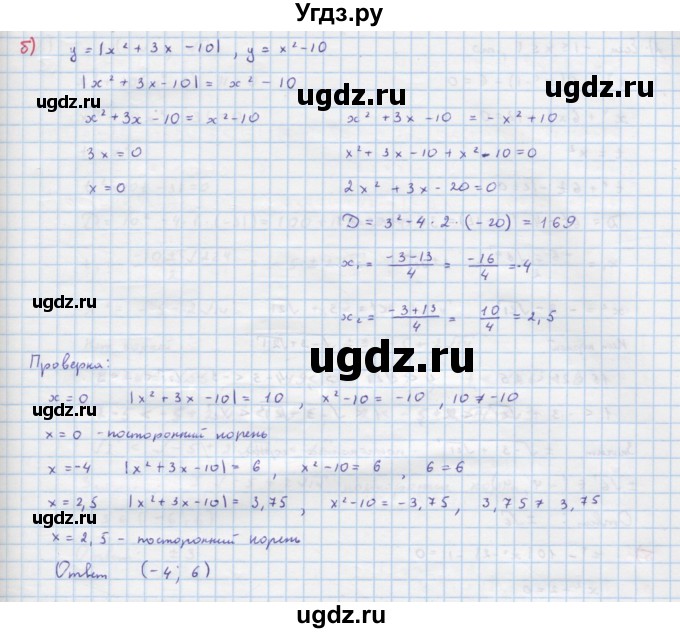 Угдз.ру
б) y = |x² + 3x - 10| , y = x² - 10
|x² + 3x - 10| = x² - 10
ugdz.ru ugdz.ru
x² + 3x - 10 = x² - 10 x² + 3x - 10 = - x² + 10
3x = 0 x² + 3x - 10 + x² - 10 = 0
x = 0 2x² + 3x - 20 = 0
D = 3² - 4 · 2 · (-20) = 169
ugdz.ru ugdz.ru
x₁ = (-3-13)/4 = -16/4 = -4
ugdz.ru
x₂ = (-3+13)/4 = 10/4 = 2,5
Проверка: ugdz.ru
x = 0 |x² + 3x - 10| = 10 , x² - 10 = -10 , 10 ≠ -10
ugdz.ru ugdz.ru
x = 0 - посторонний корень
x = -4 |x² + 3x - 10| = 6 , x² - 10 = 6 , 6 = 6
x = 2,5 |x² + 3x - 10| = 3,75 , x² - 10 = -3,75 , 3,75 ≠ 3,75
ugdz.ru ugdz.ru
x = 2,5 - посторонний корень
Ответ (-4; 6)
ugdz.ru